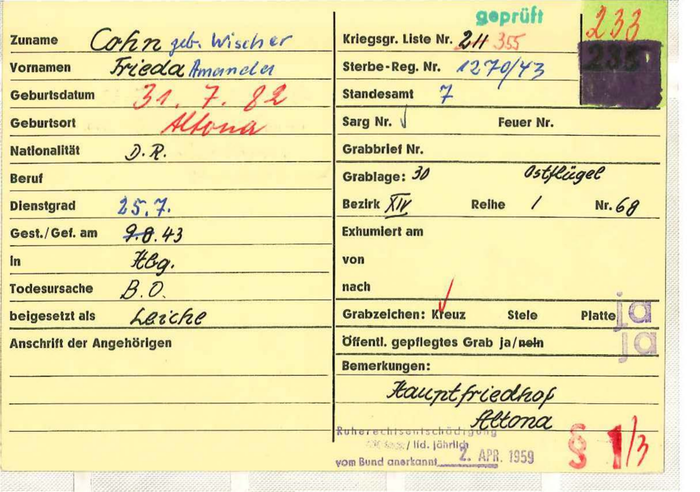 Zuname Cohn geb. Wischer
Vornamen Frieda Amanda
Geburtsdatum 31. 7. 82
Geburtsort Altona
Nationalität D.R.
Beruf
Dienstgrad 25.7.
Gest./Gef. am 9.8.43
In Hbg.
Todesursache B.O.
beigesetzt als Leiche
Anschrift der Angehörigen
geprüft
233
Kriegsgr. Liste Nr. 211 355
235
Sterbe-Reg. Nr. 1270/43
Standesamt 7
Sarg Nr. Feuer Nr.
Grabbrief Nr.
Grablage: 30 Ostflügel
Bezirk XIV Reihe 1 Nr. 68
Exhumiert am
von
nach
Grabzeichen: Kreuz Stele Platte ja
Öffentl. gepflegtes Grab ja/nein ja
Bemerkungen:
Hauptfriedhof
Altona
Ruherechtsentschädigung
/ lfd. jährlich
vom Bund anerkannt 2. APR. 1959
§ 1/3